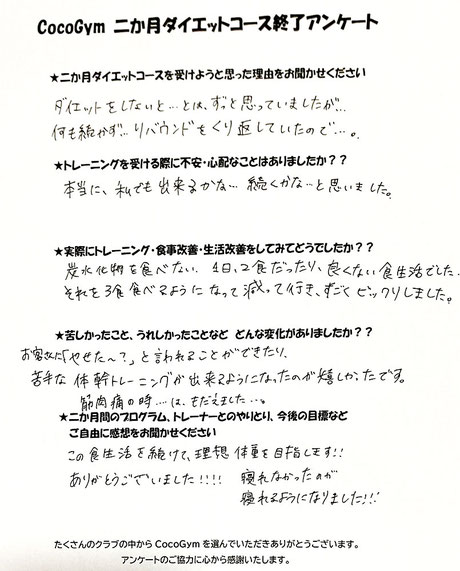 CocoGym 二か月ダイエットコース終了アンケート
★二か月ダイエットコースを受けようと思った理由をお聞かせください
ダイエットをしないと…とは、ずっと思っていましたが…
何も続かず…リバウンドをくり返していたので…。
★トレーニングを受ける際に不安・心配なことはありましたか？？
本当に、私でも出来るかな… 続くかな…と思いました。
★実際にトレーニング・食事改善・生活改善をしてみてどうでしたか？？
炭水化物を食べない、1日、2食だったり、良くない食生活でした。
それを3食食べるようになって減って行き、すごくビックリしました。
★苦しかったこと、うれしかったことなど どんな変化がありましたか？？
お客さんに「やせた〜？」と言われることができたり、
苦手な体幹トレーニングが出来るようになったのが嬉しかったです。
筋肉痛の時…は、もだえました…。
★二か月間のプログラム、トレーナーとのやりとり、今後の目標など
ご自由に感想をお聞かせください
この食生活を続けて、理想体重を目指します!!
ありがとうございました!!!! 寝れなかったのが
寝れるようになりました!!!
たくさんのクラブの中からCocoGymを選んでいただきありがとうございます。
アンケートのご協力に心から感謝いたします。